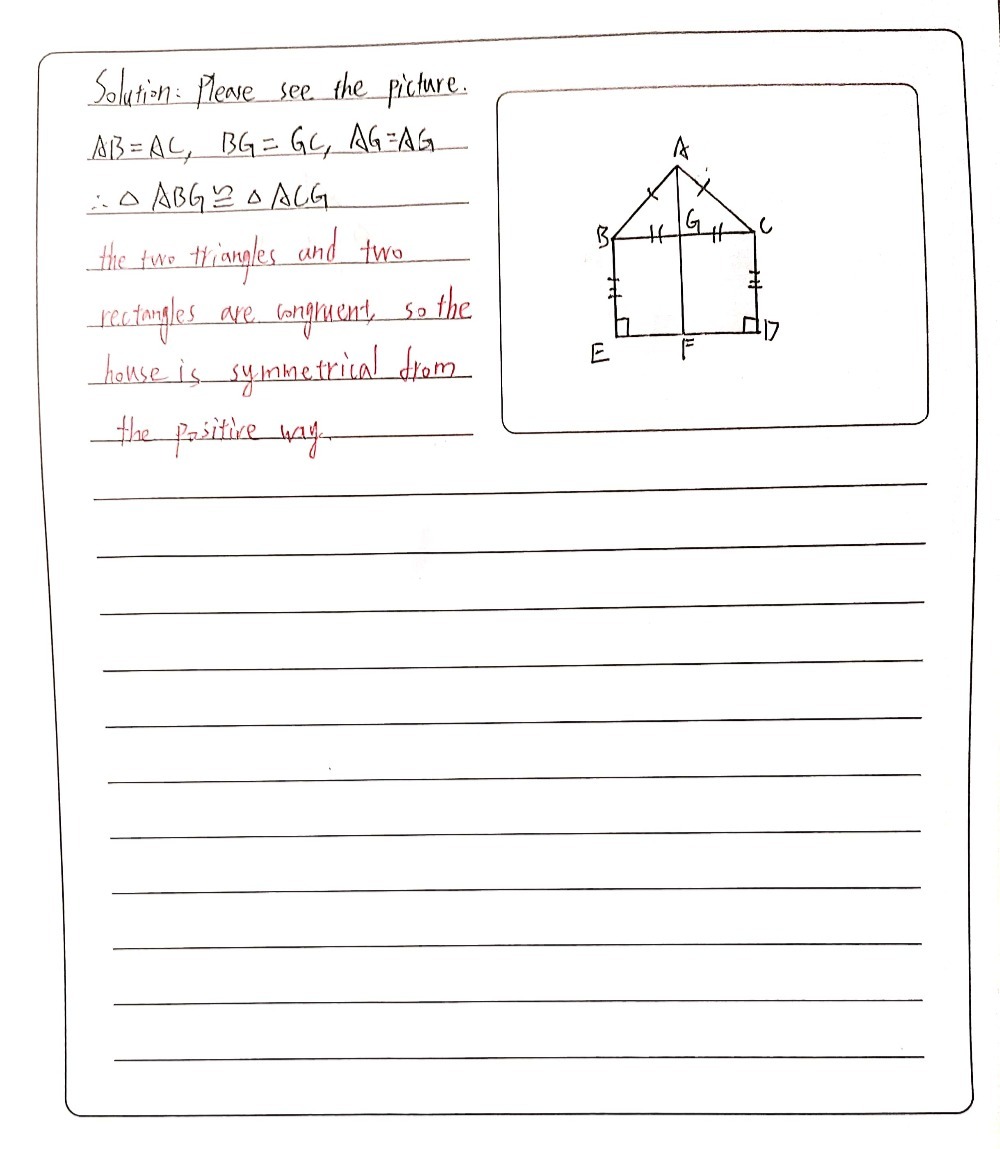 Solution: Please see the picture.
AB=AC, BG=GC, AG=AG
∴ △ ABG ≅ △ ACG
the two triangles and two
rectangles are congruent, so the
house is symmetrical from
the positive way.
A
B
G
C
E
F
D